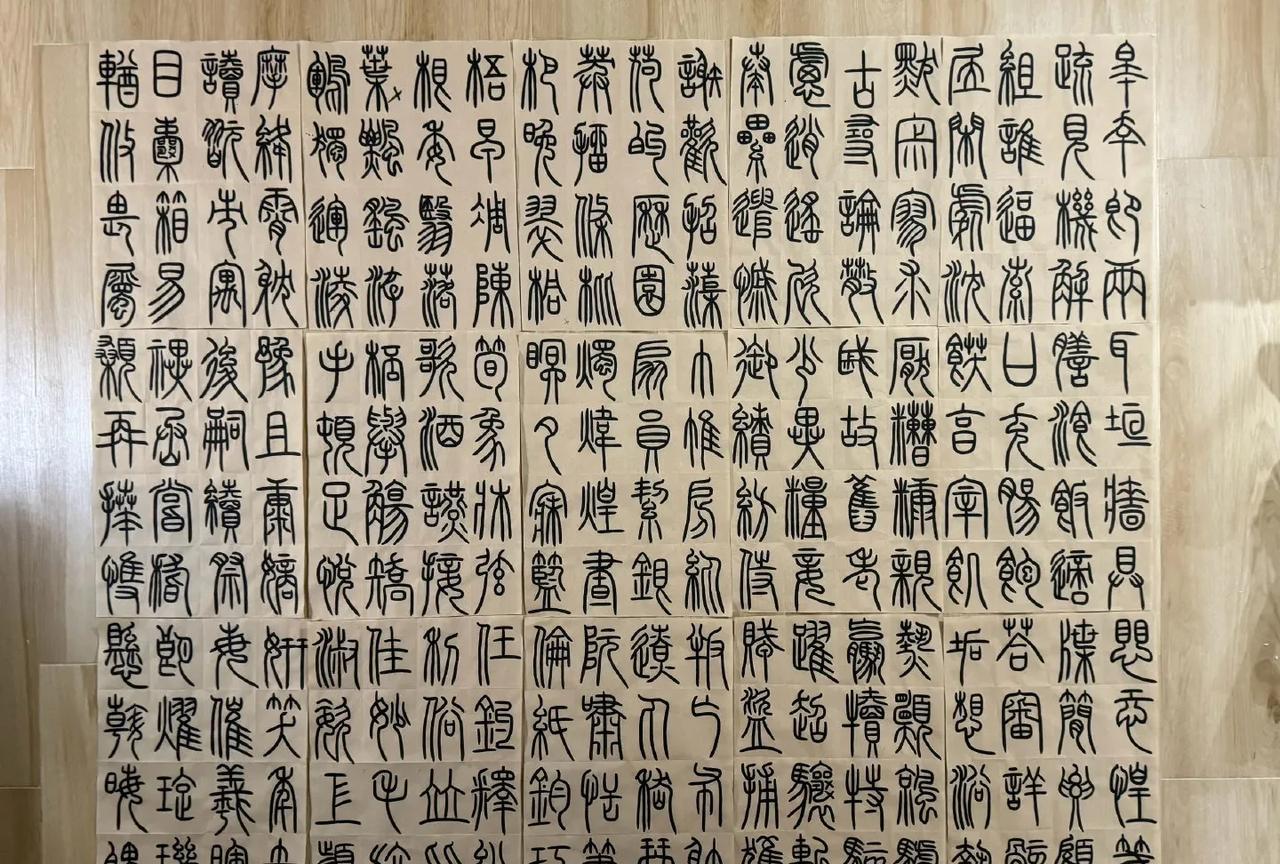 皋幸即兩
疏見機解
組誰逼索
居閒處沉
默寂寥求
古尋論散
慮逍遙欣
奏累遣慼
謝歡招渠
荷的歷園
莽抽條枇
杷晚翠梧
桐早凋陳
根委翳落
葉飄颻游
鵾獨運凌
摩絳霄耽
讀翫市寓
目囊箱易
輶攸畏屬
耳垣牆具
膳飡飯適
口充腸飽
飫亨宰飢
厭糟糠親
戚故舊老
少異糧妾
御績紡侍
巾帷房紈
扇員絜銀
燭煒煌晝
眠夕寐籃
筍象床弦
歌酒讌接
杯舉觴矯
手頓足悅
豫且康嫡
後嗣續祭
祀烝嘗稽
顙再拜悚
懼恐惶牋
牒簡要顧
答審詳骸
垢想浴執
熱願涼驢
騾犢特駭
躍超驤誅
斬賊盜捕
獲叛亡布
射遼丸嵇
琴阮嘯恬
筆倫紙鈞
巧任釣釋
紛利俗並
皆佳妙毛
施淑姿工
顰妍笑年
矢每催羲
暉朗耀琁
璣懸斡晦
魄